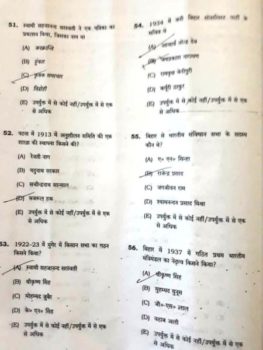 51. स्वामी सहजानन्द सरस्वती ने एक पत्रिका का
प्रकाशन किया, जिसका नाम था
(A)
(B) हुंकार
(C) कृषक समाचार
(D) विद्रोही
(E) उपर्युक्त में से कोई नहीं/उपर्युक्त में से एक
से अधिक
52. पटना में 1913 में अनुशीलन समिति की एक
शाखा की स्थापना किसने की?
(A) रेवती नाग
(B) यदुनाथ सरकार
(C) सचीन्द्रनाथ सान्याल
(D)
(E) उपर्युक्त में से कोई नहीं/उपर्युक्त में से एक
से अधिक
53. 1922-23 में मुंगेर में किसान सभा का गठन
किसने किया?
(A) स्वामी सहजानन्द सरस्वती
(B) श्रीकृष्ण सिंह
(C) मोहम्मद जुबैर
(D) के० एन० सिंह
(E) उपर्युक्त में से कोई नहीं/उपर्युक्त में से एक
से अधिक
54. 1934 में बनी बिहार सोशलिस्ट पार्टी के
सचिव थे
(A) आचार्य नरेन्द्र देव
(B) जयप्रकाश नारायण
(C) रामवृक्ष बेनीपुरी
(D) कर्पूरी ठाकुर
(E) उपर्युक्त में से कोई नहीं/उपर्युक्त में से एक
से अधिक
55. बिहार से भारतीय संविधान सभा के सदस्य
कौन थे?
(A) ए० एन० सिन्हा
(B) राजेन्द्र प्रसाद
(C) जगजीवन राम
(D) श्यामनन्दन प्रसाद मिश्रा
(E) उपर्युक्त में से कोई नहीं/उपर्युक्त में से एक
से अधिक
56. बिहार में 1937 में गठित प्रथम भारतीय
मंत्रिमंडल का नेतृत्व किसने किया?
(A) श्रीकृष्ण सिंह
(B) मुहम्मद यूनुस
(C) जी० एस० लाल
(D) वहाब अली
(E) उपर्युक्त में से कोई नहीं/उपर्युक्त में से एक
से अधिक